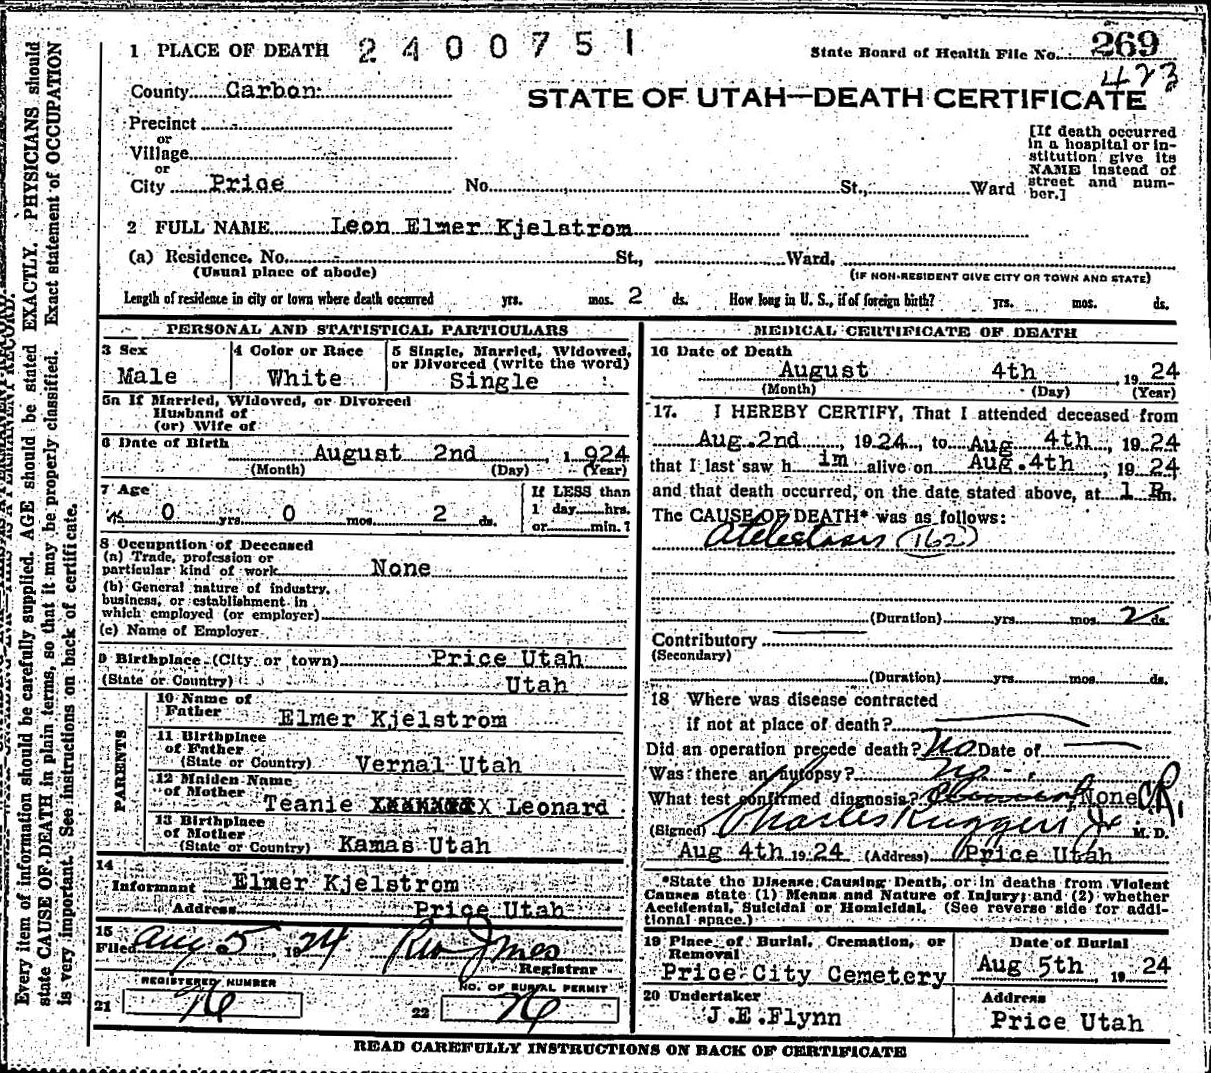 1 PLACE OF DEATH 2400751 State Board of Health File No. 269
423
County Carbon
STATE OF UTAH—DEATH CERTIFICATE
Precinct
or
Village
or
City Price No. St., Ward
[If death occurred
in a hospital or in-
stitution give its
NAME instead of
street and num-
ber.]
2 FULL NAME Leon Elmer Kjelstrom
(a) Residence. No. St., Ward.
(Usual place of abode) (IF NON-RESIDENT GIVE CITY OR TOWN AND STATE)
Length of residence in city or town where death occurred yrs. mos. 2 ds. How long in U. S., if of foreign birth? yrs. mos. ds.
PERSONAL AND STATISTICAL PARTICULARS
3 Sex
Male
4 Color or Race
White
5 Single, Married, Widowed,
or Divorced (write the word)
Single
5a If Married, Widowed, or Divorced
Husband of
(or) Wife of
6 Date of Birth
August 2nd 1924
(Month) (Day) (Year)
7 Age
0 yrs. 0 mos. 2 ds.
If LESS than
1 day hrs.
or min. ?
8 Occupation of Deceased
(a) Trade, profession or
particular kind of work None
(b) General nature of industry,
business, or establishment in
which employed (or employer)
(c) Name of Employer
9 Birthplace (City or town) Price Utah
(State or Country) Utah
PARENTS
10 Name of
Father Elmer Kjelstrom
11 Birthplace
of Father
(State or Country) Vernal Utah
12 Maiden Name
of Mother Teanie XXXXXXXX Leonard
13 Birthplace
of Mother
(State or Country) Kamas Utah
14
Informant Elmer Kjelstrom
Address Price Utah
15
Filed Aug 5 1924
Registrar
REGISTERED NUMBER
21 76
NO. OF BURIAL PERMIT
22 76
MEDICAL CERTIFICATE OF DEATH
16 Date of Death
August 4th 1924
(Month) (Day) (Year)
17. I HEREBY CERTIFY, That I attended deceased from
Aug.2nd, 1924, to Aug 4th, 1924
that I last saw him alive on Aug.4th, 1924
and that death occurred, on the date stated above, at 1 P.m.
The CAUSE OF DEATH* was as follows:
Atelectasis (162)
(Duration) yrs. mos. 2 ds.
Contributory
(Secondary)
(Duration) yrs. mos. ds.
18 Where was disease contracted
if not at place of death?
Did an operation precede death? No Date of
Was there an autopsy? No
What test confirmed diagnosis? None C.R.
(Signed) Charles Ruggeri Jr. M. D.
Aug 4th 1924 (Address) Price Utah
*State the Disease Causing Death, or in deaths from Violent
Causes state (1) Means and Nature of Injury; and (2) whether
Accidental, Suicidal or Homicidal. (See reverse side for addi-
tional space.)
19 Place of Burial, Cremation, or
Removal
Price City Cemetery
Date of Burial
Aug 5th 1924
20 Undertaker
J.E.Flynn
Address
Price Utah
READ CAREFULLY INSTRUCTIONS ON BACK OF CERTIFICATE
Every item of information should be carefully supplied. AGE should be stated EXACTLY. PHYSICIANS should
state CAUSE OF DEATH in plain terms, so that it may be properly classified. Exact statement of OCCUPATION
is very important. See instructions on back of certificate.